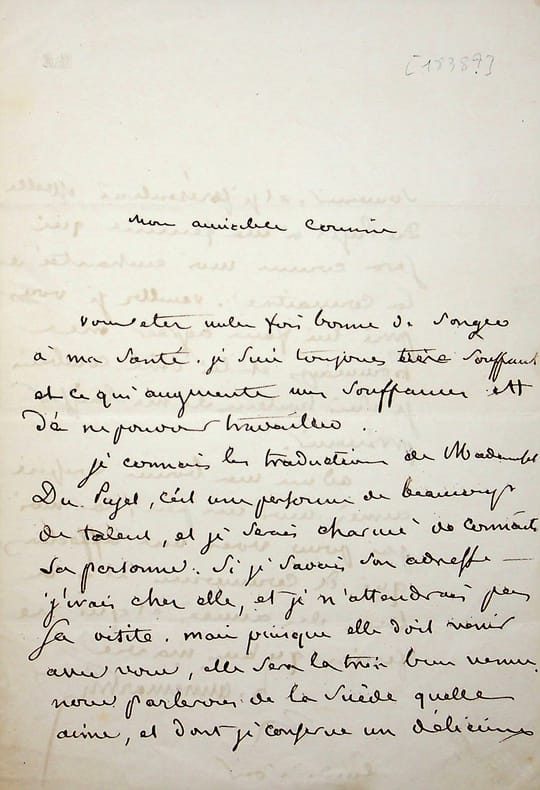 [1838?]
Mon aimable Cousine
vous etes mille fois bonne de songer
à ma santé. je suis toujours très souffrant
et ce qui augmente mes souffrances est
de ne pouvoir travailler.
je connais les traductions de Mademlle
Du Puget, c'est une personne de beaucoup
de talent, et je serais charmé de connaitre
sa personne. Si je savais son adresse
j'irais chez elle, et je n'attendrais pas
sa visite. mais puisque elle doit venir
avec vous, elle sera la très bien venue.
nous parlerons de la Suède quelle
aime, et dont je conserve un délicieux